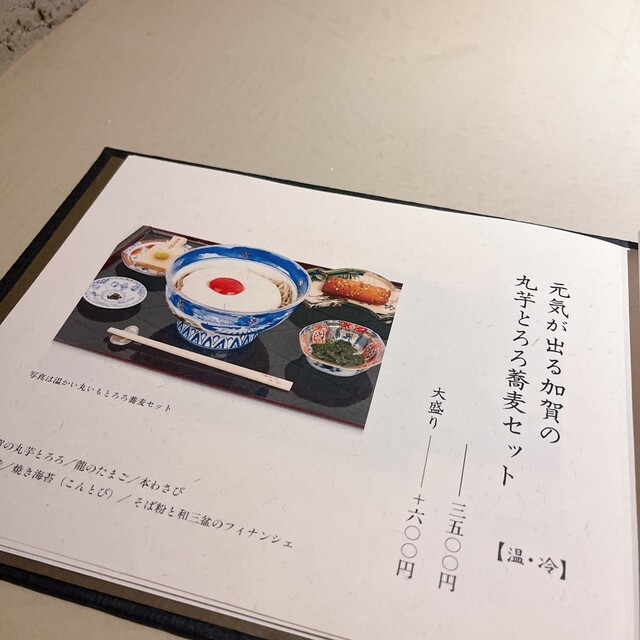 元気が出る加賀の
丸芋とろろ蕎麦セット
【温・冷】
三五〇〇円
大盛り
+六〇〇円
写真は温かい丸いもとろろ蕎麦セット
の丸芋とろろ/龍のたまご/本わさび
/焼き海苔(こんとび)/そば粉と和三盆のフィナンシェ